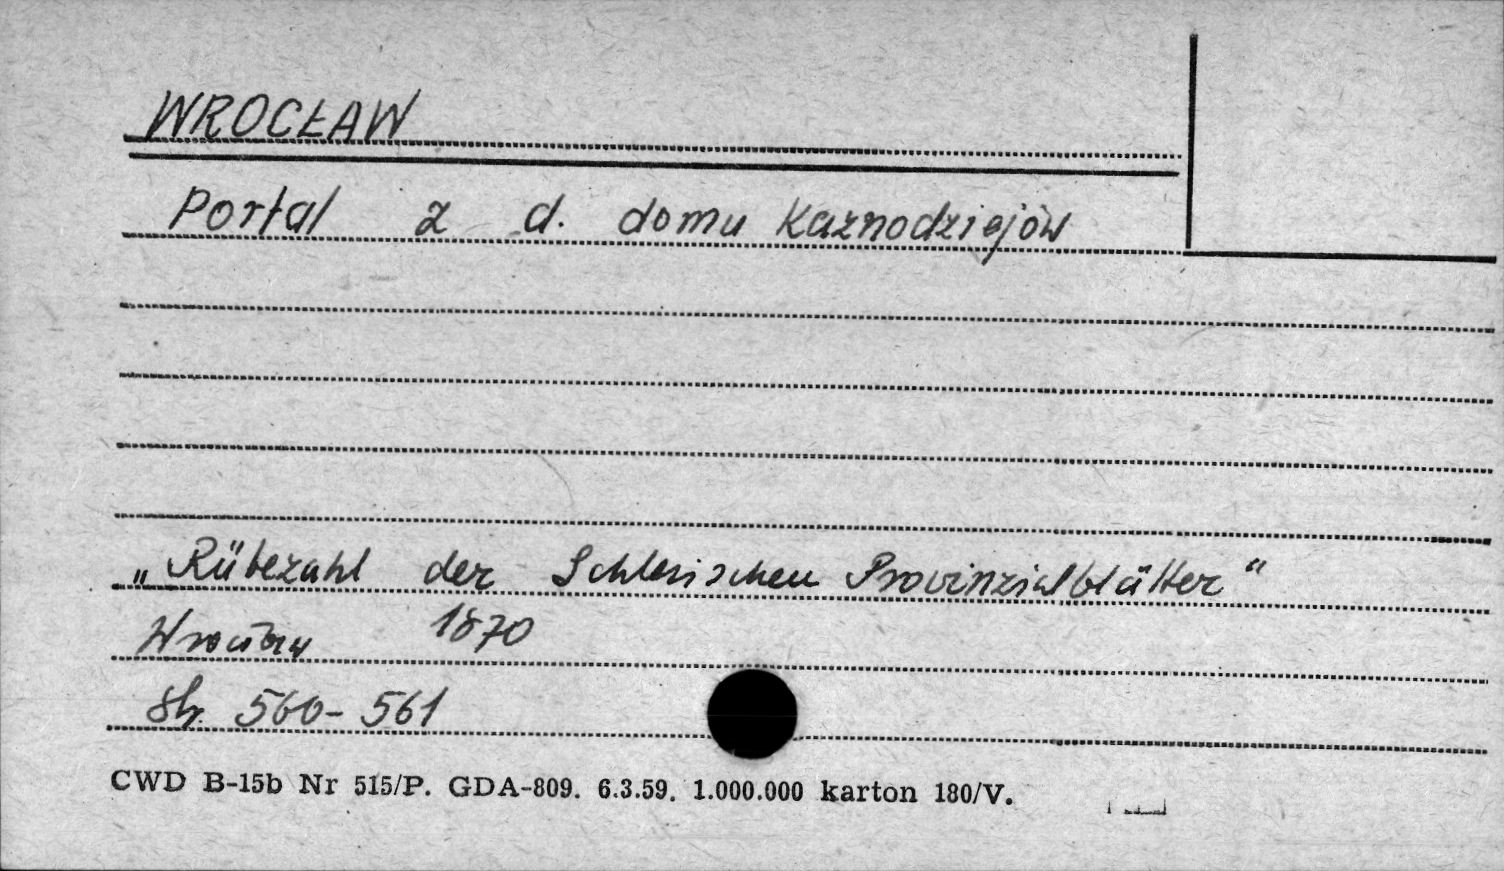 WROCŁAW
Portal z d. domu Kaznodziejów
„Rübezahl der Schlesischen Provinzialblätter“
Wrocław 1870
Str. 560-561
CWD B-15b Nr 515/P. GDA-809. 6.3.59. 1.000.000 karton 180/V.